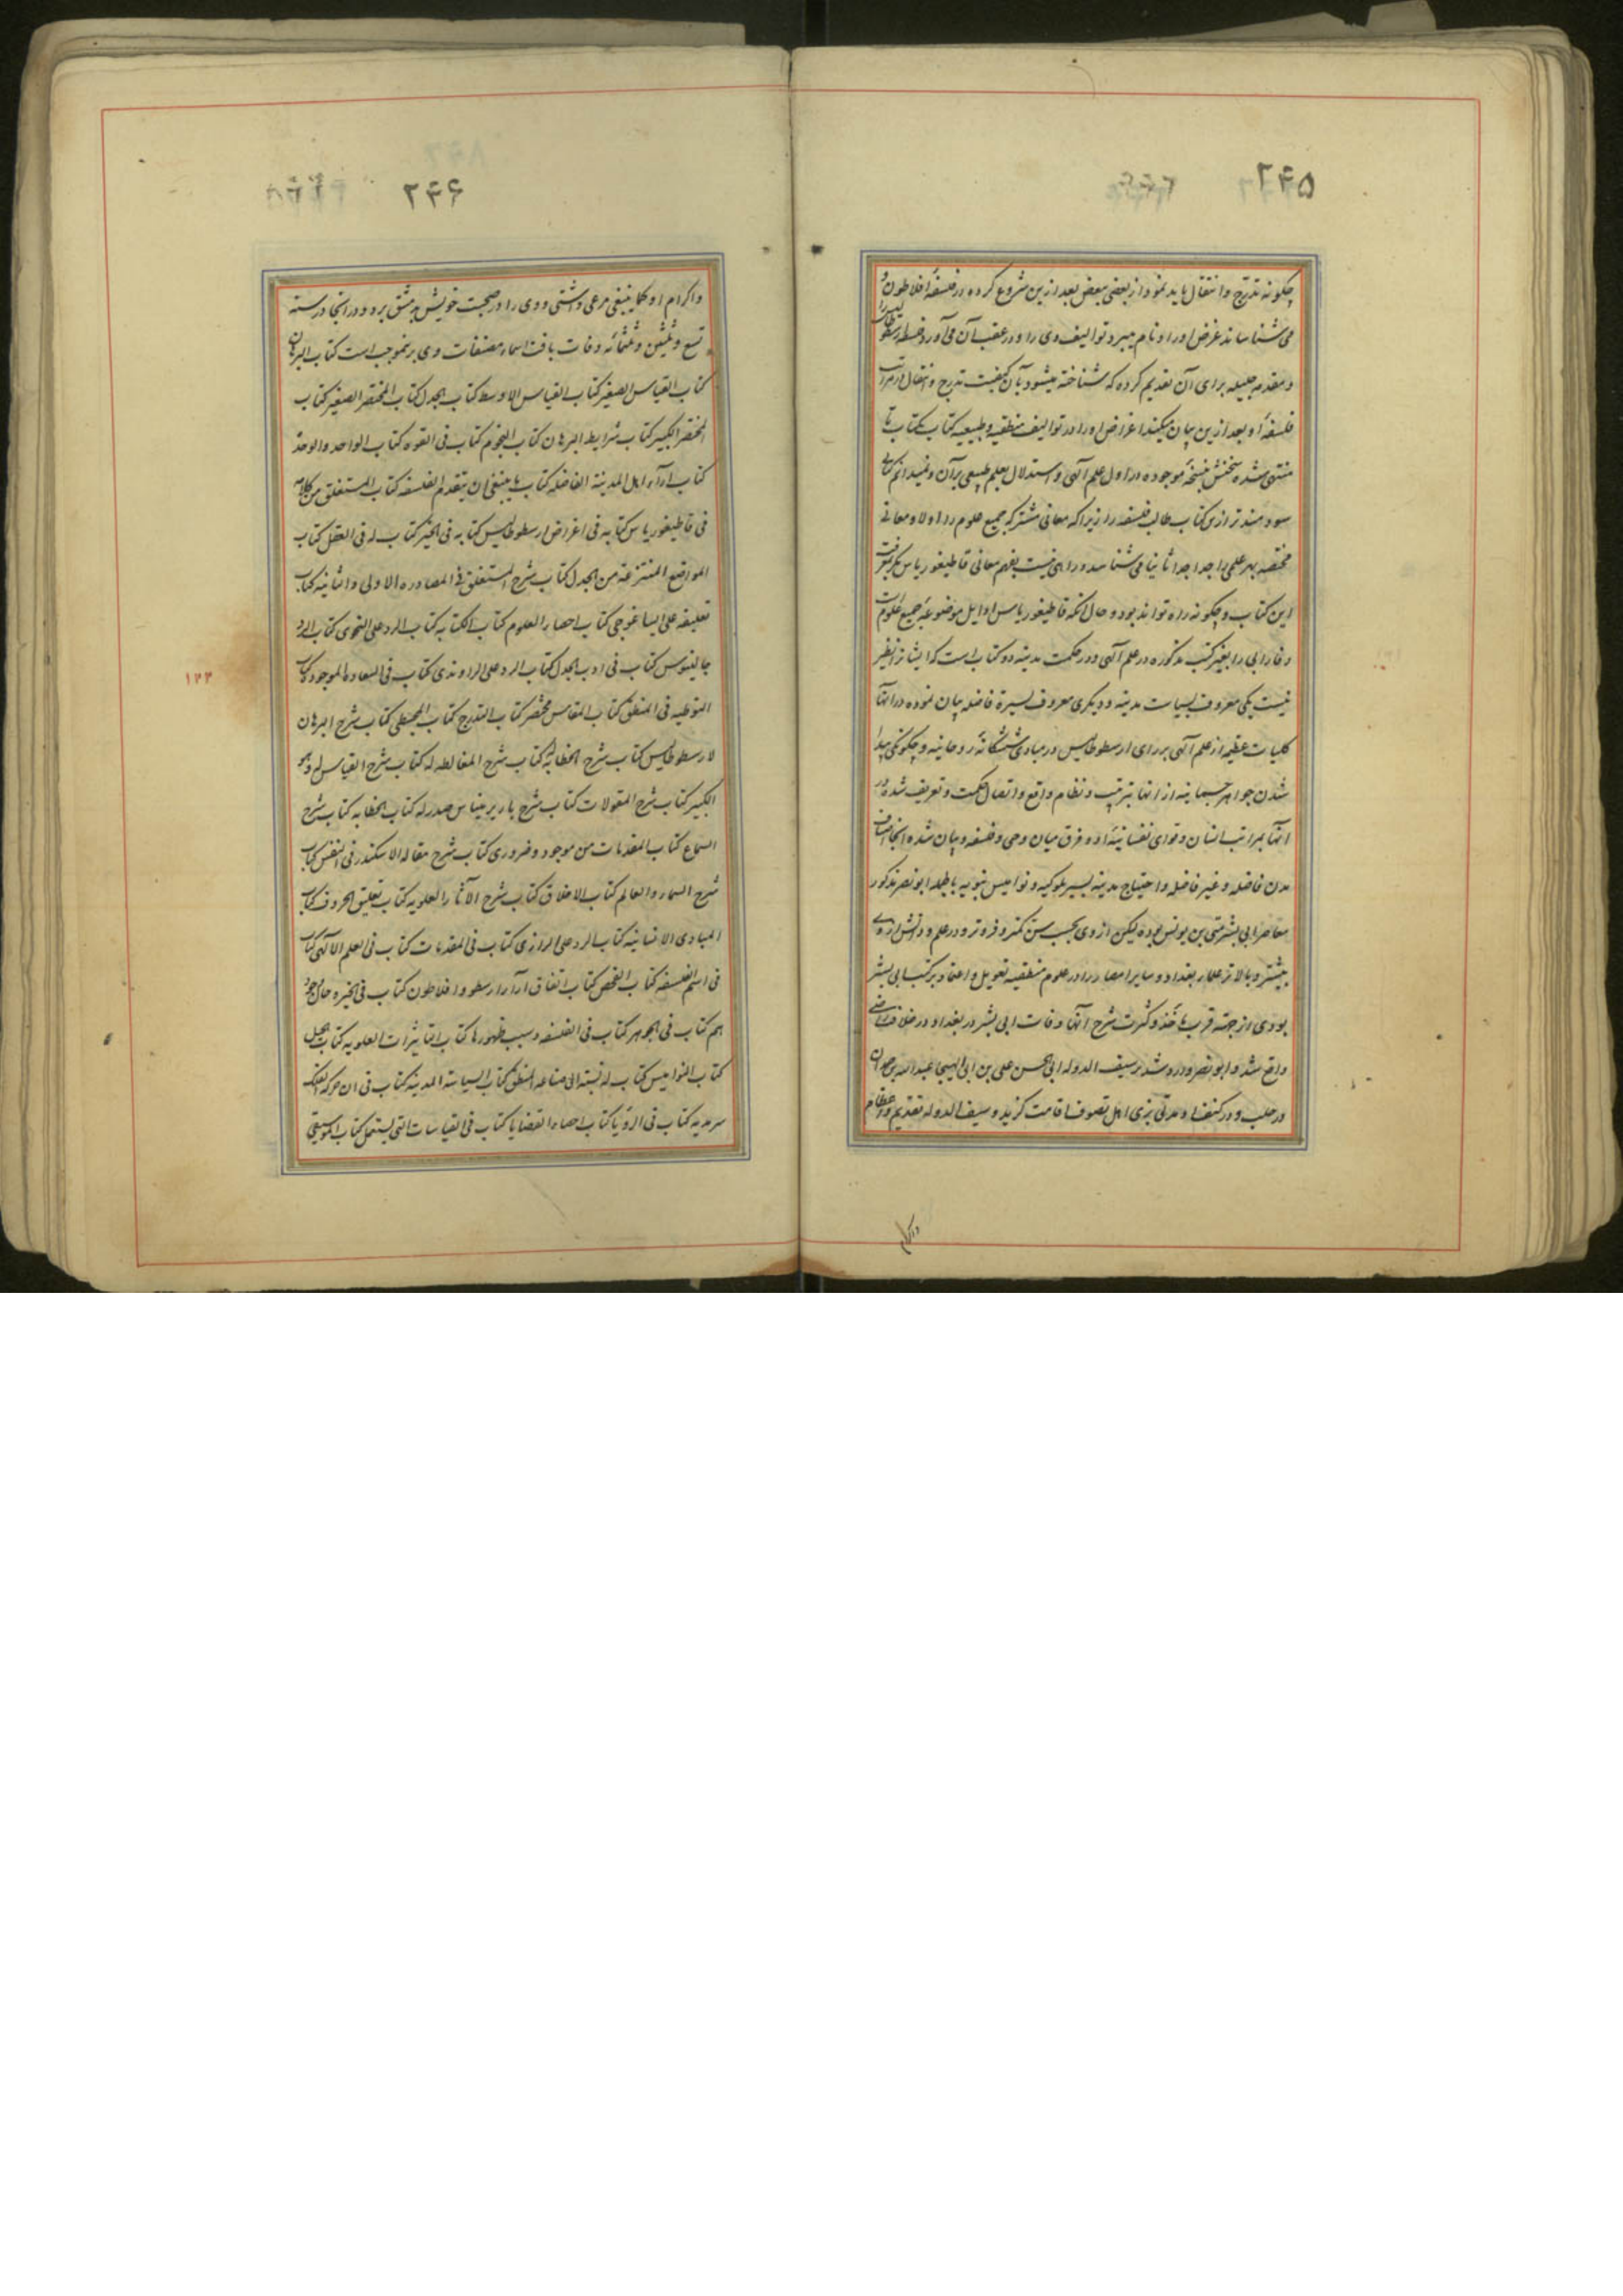 چگونه تدرج و انتقال باید نمود از بعضی ببعض بعد ازین شروع کرده در فلسفهٔ افلاطون و
می شناساند غرض او را و نام میبرد توالیف وی را و در عقب آن می آورد فلسفه ارسطوطالیس را
و مقدمه جلیله برای آن تقدیم کرده که شناخته میشود بآن کیفیت تدرج و انتقال از مراتب
فلسفهٔ او بعد ازین بیان میکند اغراض او را در توالیف منطقیه و طبیعیه کتاب بکتاب تا
منتهی شده سخنش بنسخهٔ موجوده در اول علم آلهی و استدلال بعلم طبیعی بر آن و نمیدانم کتابی
سودمندتر ازین کتاب طالب فلسفه را زیرا که معانی مشترکه جمیع علوم را اولا و معانی
مختصه بهر علمی را جدا جدا ثانیا می شناسد و راهی نیست بفهم معانی قاطیغوریاس مگر بمعرفت
این کتاب و چگونه راه تواند بود و حال آنکه قاطیغوریاس اوایل موضوعهٔ جمیع علوم است
و فارابی را بغیر کتب مذکوره در علم آلهی و در حکمت مدینه دو کتاب است که ایشانرا نظیر
نیست یکی معروف بسیاست مدینه و دیگری معروف بسیرة فاضله بیان نموده در آنها
کلیات عظیمه از علم آلهی بر رای ارسطوطالیس در مبادی ششگانهٔ روحانیه و چگونگی پیدا
شدن جواهر جسمانیه از آنها بترتیب و نظام واقع و اتصال حکمت و تعریف شده در
آنها بمراتب انسان و قوای نفسانیهٔ او و فرق میان وحی و فلسفه و بیان شده آنجا اصناف
مدن فاضله و غیر فاضله و احتیاج مدینه بسیر ملوکیه و نوامیس نبویه بالجمله ابو نصر مذکور
معاصر ابی بشر متی بن یونس بوده لیکن از وی بحسب سن کمتر و فروتر و در علم و دانش از وی
بیشتر و بالاتر علمای بغداد و سایر امصار را در علوم منطقیه تعویل و اعتماد بر کتب ابی بشر
بودی از جهة قرب ماخذ و کثرت شرح آنها وفات ابی بشر در بغداد در خلافت راضی
واقع شد و ابو نصر وارد شد بر سیف الدوله ابی الحسن علی بن ابی الهیجا عبدالله بن حمدان
در حلب و در کنف او مدتی بزی اهل تصوف اقامت گزید و سیف الدوله تقدیم و اعظام
و اکرام
و اکرام او کما ینبغی مرعی داشتی و وی را در صحبت خویش بدمشق برد و در آنجا در سنه
تسع و ثلثین و ثلثمائه وفات یافت اسماء مصنفات وی برینموجب است کتاب البرهان
کتاب القیاس الصغیر کتاب القیاس الاوسط کتاب الجدل کتاب المختصر الصغیر کتاب
المختصر الکبیر کتاب شرایط البرهان کتاب النجوم کتاب فی القوه کتاب الواحد و الوحدة
کتاب آراء اهل المدینة الفاضله کتاب ما ینبغی ان یتقدم الفلسفه کتاب المستغلق من کلامه
فی قاطیغوریاس کتابه فی اغراض ارسطوطالیس کتابه فی الجزء کتاب له فی العقل کتاب
المواضع المنتزعة من الجدل کتاب شرح المستغلق فی المصادره الاولی و الثانیه کتاب
تعلیقه علی ایساغوجی کتاب احصاء العلوم کتاب الکنایه کتاب الرد علی النحوی کتاب الرد
جالینوس کتاب فی ادب الجدل کتاب الرد علی الراوندی کتاب فی السعادة الموجوده کتاب
۱۲۳
التوطیه فی المنطق کتاب المقاییس مختصر کتاب التدرج کتاب المجسطی کتاب شرح البرهان
لارسطوطالیس کتاب شرح الخطابه کتاب شرح المغالطه له کتاب شرح القیاس له و هو
الکبیر کتاب شرح المقولات کتاب شرح باریرمیناس صدر له کتاب الخطابه کتاب شرح
السماع کتاب المقدمات من موجود و ضروری کتاب شرح مقاله الاسکندر فی النفس کتاب
شرح السماء و العالم کتاب الاخلاق کتاب شرح الآثار العلویه کتاب تعلیق الحروف کتاب
المبادی الانسانیه کتاب الرد علی الرازی کتاب فی المقدمات کتاب فی العلم الالهی کتاب
فی اسم الفلسفه کتاب الفحص کتاب اتفاق آراء ارسطو و افلاطون کتاب فی الجن و حال وجود
هم کتاب فی الجوهر کتاب فی الفلسفه و سبب ظهورها کتاب التاثیرات العلویه کتاب الحیل
کتاب النوامیس کتاب له نسبته الی صناعة المنطق کتاب السیاسة المدینه کتاب فی ان حرکة الفلک
سرمدیه کتاب فی الرؤیا کتاب احصاء القضایا کتاب فی القیاسات التی یستعمل کتاب الموسیقی